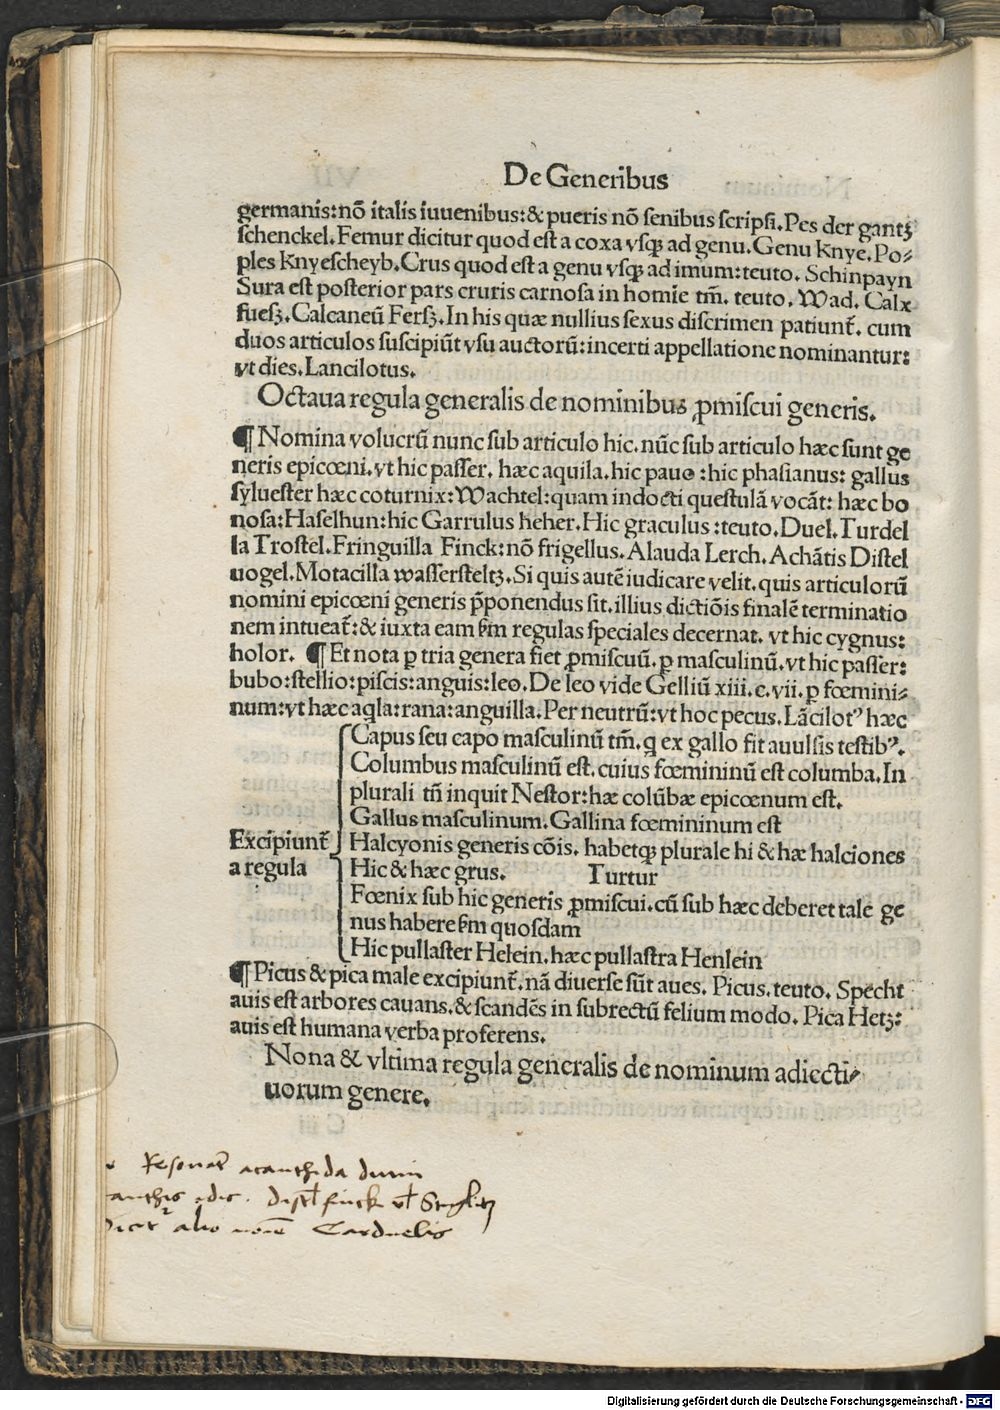 De Generibus
germanis:nō italis iuuenibus:& pueris nō senibus scripsi.Pes der gantʒ
schenckel.Femur dicitur quod est a coxa vsqꝫ ad genu.Genu Knye.Po⸗
ples Knyescheyb.Crus quod est a genu vsqꝫ ad imum:teuto. Schinpayn
Sura est posterior pars cruris carnosa in homīe tm̄. teuto. Wad. Calx
fuesʒ.Calcaneū Fersʒ.In his quæ nullius sexus discrimen patiunt᷑. cum
duos articulos suscipiūt vsu auctorū:incerti appellatione nominantur:
vt dies.Lancilotus.
Octaua regula generalis de nominibus ꝓmiscui generis.
¶ Nomina volucrū nunc sub articulo hic.nūc sub articulo hæc sunt ge
neris epicœni.vt hic passer. hæc aquila.hic pauo :hic phasianus: gallus
syluester hæc coturnix:Wachtel:quam indocti questulā vocāt: hæc bo
nosa:Haselhun:hic Garrulus heher.Hic graculus :teuto.Duel.Turdel
la Trostel.Fringuilla Finck:nō frigellus.Alauda Lerch.Achātis Distel
uogel.Motacilla wassersteltʒ.Si quis autē iudicare velit.quis articulorū
nomini epicœni generis p̄ponendus sit.illius dictiōis finalē terminatio
nem intueat᷑:& iuxta eam ẜm regulas speciales decernat. vt hic cygnus:
holor. ¶ Et nota ꝑ tria genera fiet ꝓmiscuū.ꝑ masculinū.vt hic passer:
bubo:stellio:piscis:anguis:leo.De leo vide Gelliū xiii.c.vii.ꝑ fœmini⸗
num:vt hæc aqla:rana:anguilla.Per neutrū:vt hoc pecus.Lācilotꝰ hæc
Capus seu capo masculinū tm̄.q ex gallo fit auulsis testibꝰ.
Columbus masculinū est.cuius fœmininū est columba.In
plurali tn̄ inquit Nestor:hæ colūbæ epicœnum est.
Gallus masculinum.Gallina fœmininum est
Excipiunt᷑ Halcyonis generis cōis. habetqꝫ plurale hi & hæ halciones
a regula Hic & hæc grus. Turtur
Fœnix sub hic generis ꝓmiscui.cū sub hæc deberet tale ge
nus habere ẜm quosdam
Hic pullaster Helein.hæc pullastra Henlein
¶ Picus & pica male excipiunt᷑.nā diuerse sūt aues. Picus.teuto. Specht
auis est arbores cauans.& scandēs in subrectū felium modo. Pica Hetʒ:
auis est humana verba proferens.
Nona & vltima regula generalis de nominum adiecti⸗
uorum genere.
Resonat acanthida dumi
anthis distl finck vl Stiglitz
alio Carduelis
Digitalisierung gefördert durch die Deutsche Forschungsgemeinschaft - DFG